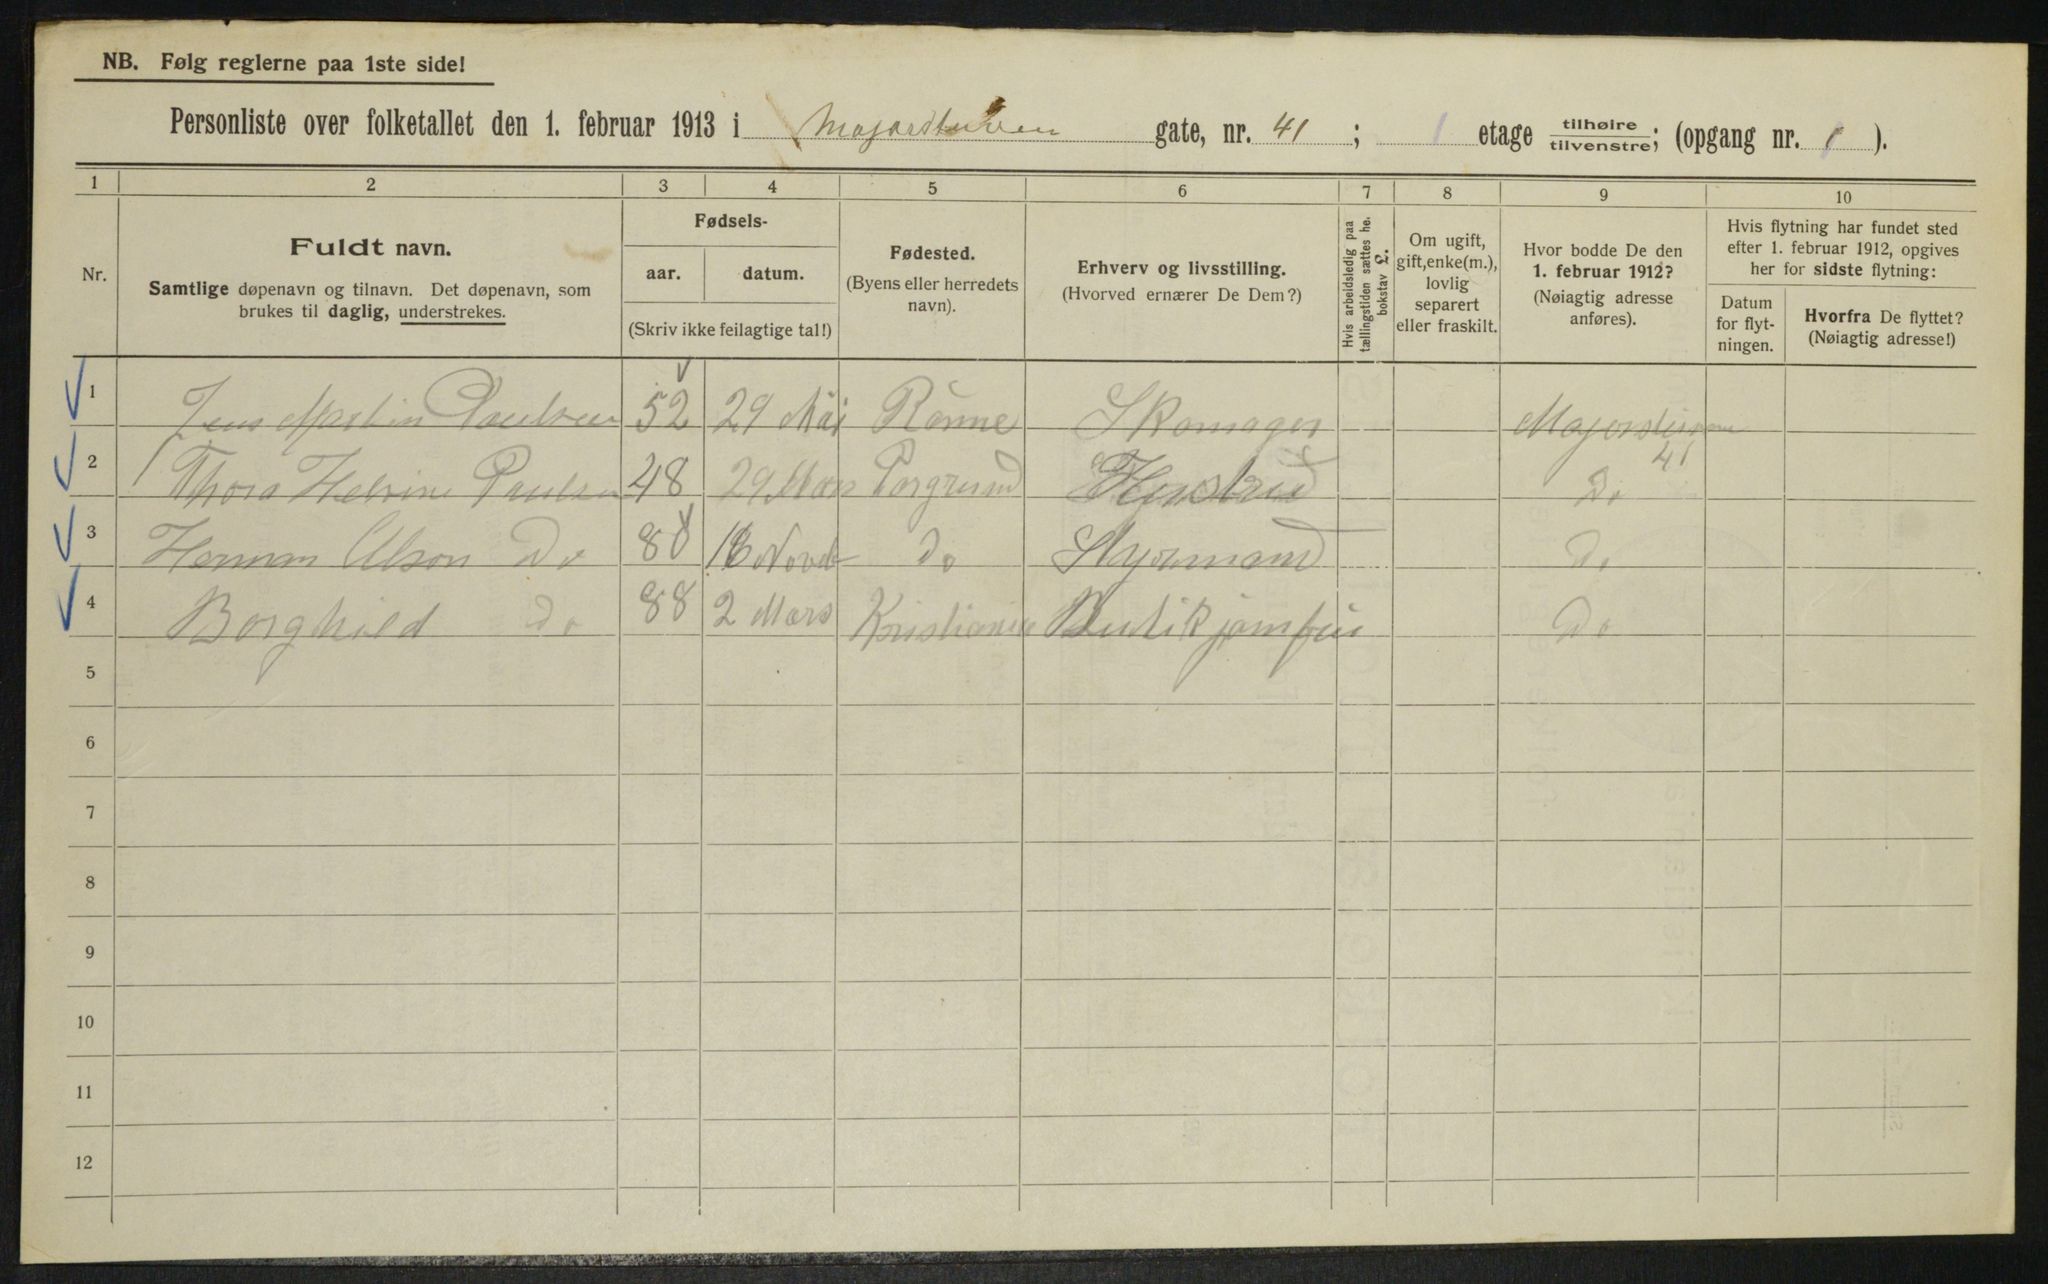 NB. Følg reglerne paa 1ste side!
Personliste over folketallet den 1. februar 1913 i Majorstuven gate, nr. 41 ; 1 etage tilhøire tilvenstre; (opgang nr. 1 ).
1 2 3 4 5 6 7 8 9 10
Nr.
Fuldt navn.
Samtlige døpenavn og tilnavn. Det døpenavn, som
brukes til daglig, understrekes.
Fødsels-
aar. datum.
(Skriv ikke feilagtige tal!)
Fødested.
(Byens eller herredets
navn).
Erhverv og livsstilling.
(Hvorved ernærer De Dem?)
Hvis arbeidsledig paa
tællingstiden sættes he.
bokstav L.
Om ugift,
gift, enke(m.),
lovlig
separert
eller fraskilt.
Hvor bodde De den
1. februar 1912?
(Nøiagtig adresse
anføres).
Hvis flytning har fundet sted
efter 1. februar 1912, opgives
her for sidste flytning:
Datum
for flyt-
ningen.
Hvorfra De flyttet?
(Nøiagtig adresse!)
1 Jens Martin Paulsen 52 29 Mai Rönne Skomager
41
2 Thora Helvine Paulsen 48 29 Mars Porgrund Hustrud Do
3 Herman Olson Do 88 Novb Do Styrmand Do
4 Borghild Do 88 2 Mars Kristiania Butikjomfru Do
5
6
7
8
9
10
11
12